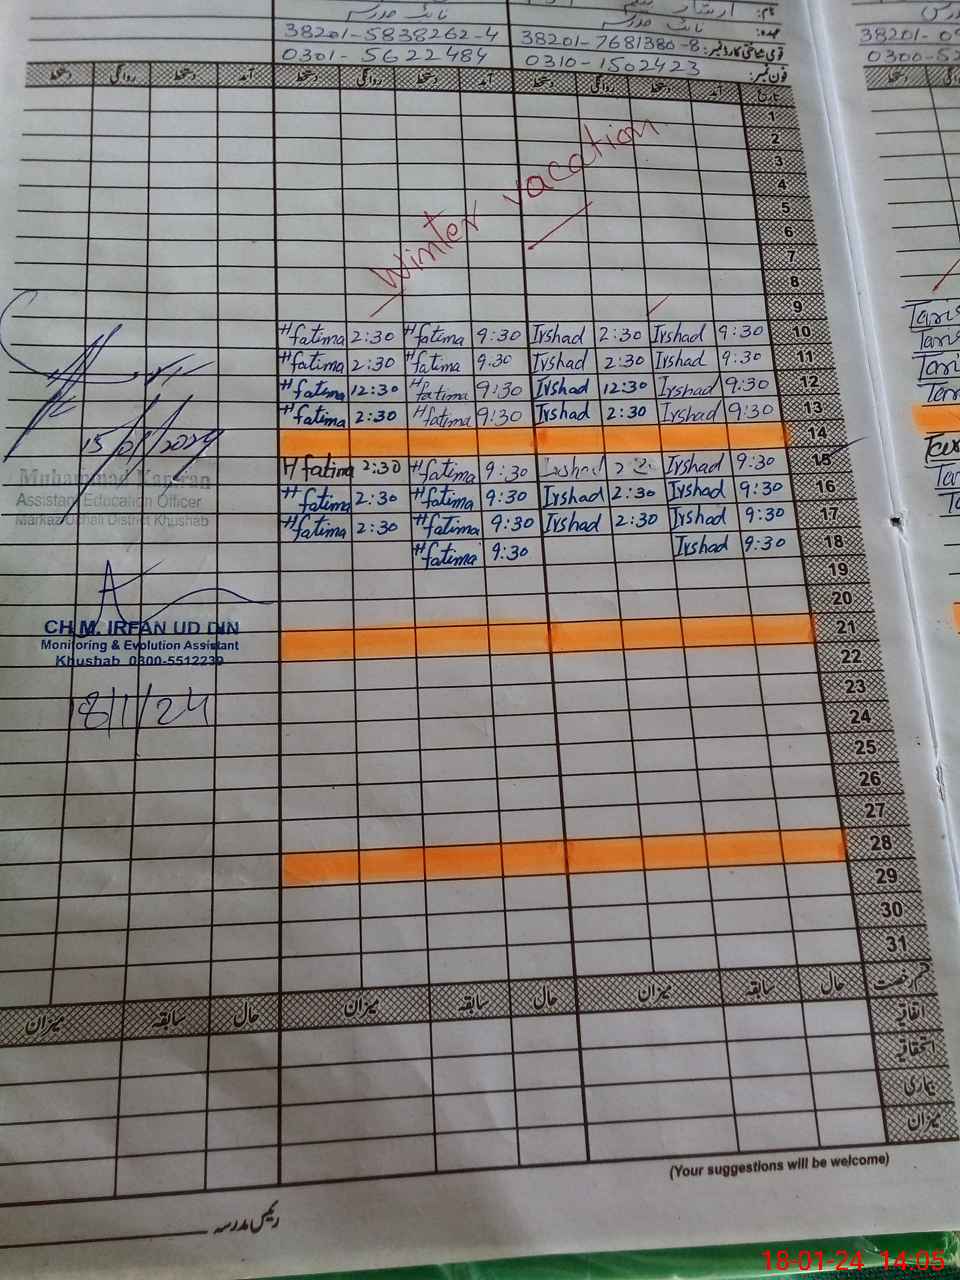 نائب مدرسہ نائب مدرسہ
38201-5838262-4 38201-7681380-8 قومی شناختی کارڈ نمبر:
0301-5622484 0310-1502423 فون نمبر:
دستخط روانگی دستخط آمد دستخط روانگی دستخط آمد دستخط روانگی دستخط آمد تاریخ
1
2
3
4
5
6
7
8
9
Winter vacation
H fatima 2:30 H fatima 9:30 Irshad 2:30 Irshad 9:30 10
H fatima 2:30 H fatima 9:30 Irshad 2:30 Irshad 9:30 11
H fatima 12:30 H fatima 9:30 Irshad 12:30 Irshad 9:30 12
H fatima 2:30 H fatima 9:30 Irshad 2:30 Irshad 9:30 13
14
H fatima 2:30 H fatima 9:30 Irshad Irshad 9:30 15
H fatima 2:30 H fatima 9:30 Irshad 2:30 Irshad 9:30 16
H fatima 2:30 H fatima 9:30 Irshad 2:30 Irshad 9:30 17
H fatima 9:30 Irshad 9:30 18
19
20
21
22
23
24
25
26
27
28
29
30
31
15/01/2024
Muhammad Kamran
Assistant Education Officer
Markaz Uchali District Khushab
CH.M. IRFAN UD DIN
Monitoring & Evolution Assistant
Khushab 0300-5512239
18/1/24
میزان سابقہ حال میزان سابقہ حال میزان سابقہ حال قسم رخصت
اتفاقیہ
استحقاقیہ
بیماری
میزان
(Your suggestions will be welcome)
رئیس مدرسہ
38201-0
0300-52
18-01-24 14:05